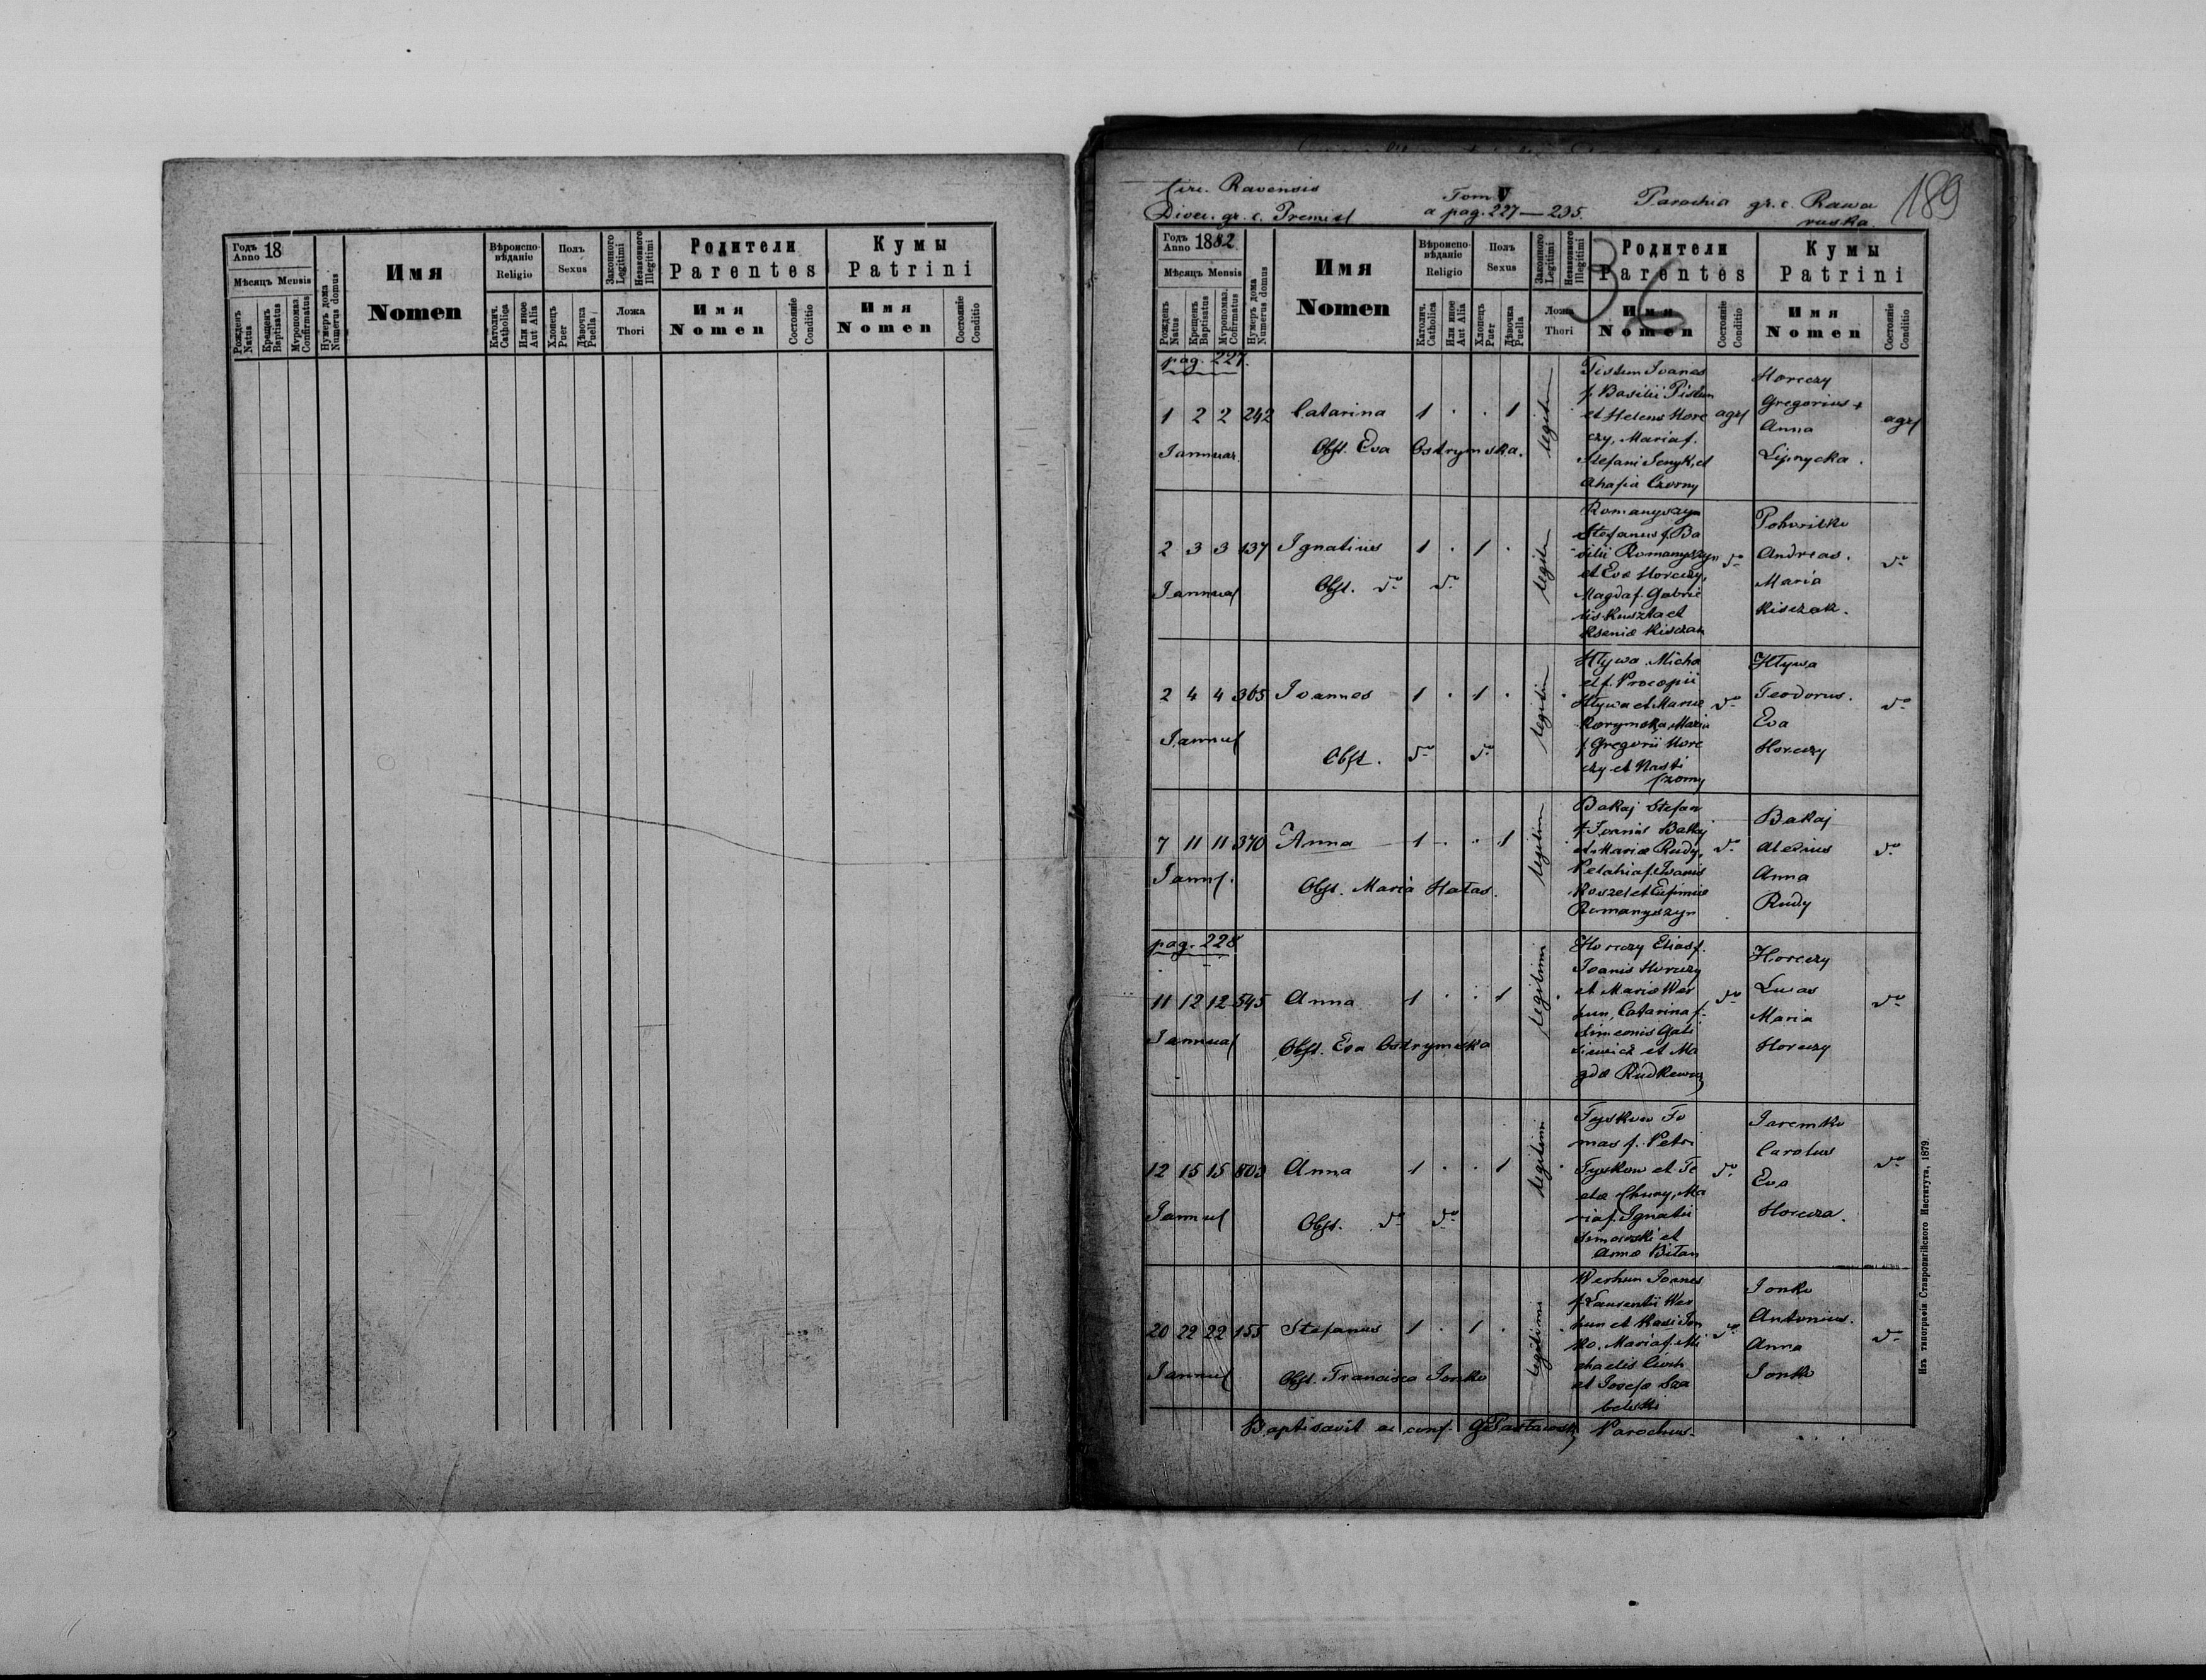 Годъ Anno 18
Мѣсяцъ Mensis
Рожденъ Natus
Крещенъ Baptisatus
Мνропомаз. Confirmatus
Нумеръ дома Numerus domus
Имя
Nomen
Вѣроиспо-
вѣданіе
Religio
Католич. Catholica
Или иное Aut Alia
Полъ
Sexus
Хлопецъ Puer
Дѣвочка Puella
Законного Legitimi
Незаконного Illegitimi
Ложа
Thori
Родители
Parentes
Имя
Nomen
Состояніе Conditio
Кумы
Patrini
Имя
Nomen
Состояніе Conditio
Circ. Ravensis
Dioec. gr. c. Premisl
Tom V
a pag. 227 — 235.
Parochia gr. c. Rawa
ruska
189
36
Годъ Anno 1882
Мѣсяцъ Mensis
Рожденъ Natus
Крещенъ Baptisatus
Мνропомаз. Confirmatus
Нумеръ дома Numerus domus
Имя
Nomen
Вѣроиспо-
вѣданіе
Religio
Католич. Catholica
Или иное Aut Alia
Полъ
Sexus
Хлопецъ Puer
Дѣвочка Puella
Законного Legitimi
Незаконного Illegitimi
Ложа
Thori
Родители
Parentes
Имя
Nomen
Состояніе Conditio
Кумы
Patrini
Имя
Nomen
Состояніе Conditio
pag. 227.
1 2 2 242 Catarina 1 . . 1
Januar.
Obst. Eva Ostrymska.
legitim
f. Basilii Pistun
et Helena Hore
czy, Maria f.
Stefani Senyk, et
Ahafia Czorny
agr
Horeczy
Gregorius +
Anna
Lipnycka.
agr
2 3 3 137 Ignatius 1 . 1 .
Januar
Obst. do do
legitim
Romanyszyn
Stefanus f. Ba
silii Romanyszyn
et Eva Horeczy,
Magda f. Gabrie
lis Kuszka et
Ksenia Kisczak
do
Andreas.
Maria
Kisczak.
do
2 4 4 365 Ioannes 1 . 1 .
Januar
Obst. do do
legitim
Hływa Micha
el f. Procopii
Hływa et Maria
Korymska, Maria
f. Gregorii Hore
czy et Nasti
Czorny
do
Hływa
Teodorus.
Eva
Horeczy
do
7 11 11 370 Anna 1 . . 1
Janu.
Obst. Maria Hałas.
legitim
Bakaj Stefan
f. Ioanis Bakaj
et Maria Rudy,
Pelahia f. Ioanis
Koszel et Eufimia
Romanyszyn
do
Bakaj
Alexius
Anna
Rudy
do
pag. 228
11 12 12 545 Anna 1 . . 1
Januar
Obst. Eva Ostrymska
legitimi
Horeczy Elias f.
Ioanis Horeczy
et Maria Wer
hun, Catarina f.
Simeonis Gali
siewicz et Ma
gda Rudkewicz
do
Horeczy
Lucas
Maria
Horeczy
do
12 15 15 803 Anna 1 . . 1
Januar
Obst. do do
legitimi
Tyskow To
mas f. Petri
Tyskow et Te
cla Chuny, Ma
ria f. Ignatii
et
Anna Biłan
do
Jaremko
Carolus
Eva
Horecza.
do
20 22 22 155 Stefanus 1 . 1 .
Januar
Obst. Francisca Jonko
legitimi
Werhun Ioanes
f. Laurentii Wer
hun et Kasi Jon
ko. Maria f. Mi
chaelis
et Josefa Sza
belski
do
Jonko
Antonius.
Anna
Jonko
do
Baptisavit ac conf. Parochus.
Изъ типографіи Ставропигійского Института, 1879.